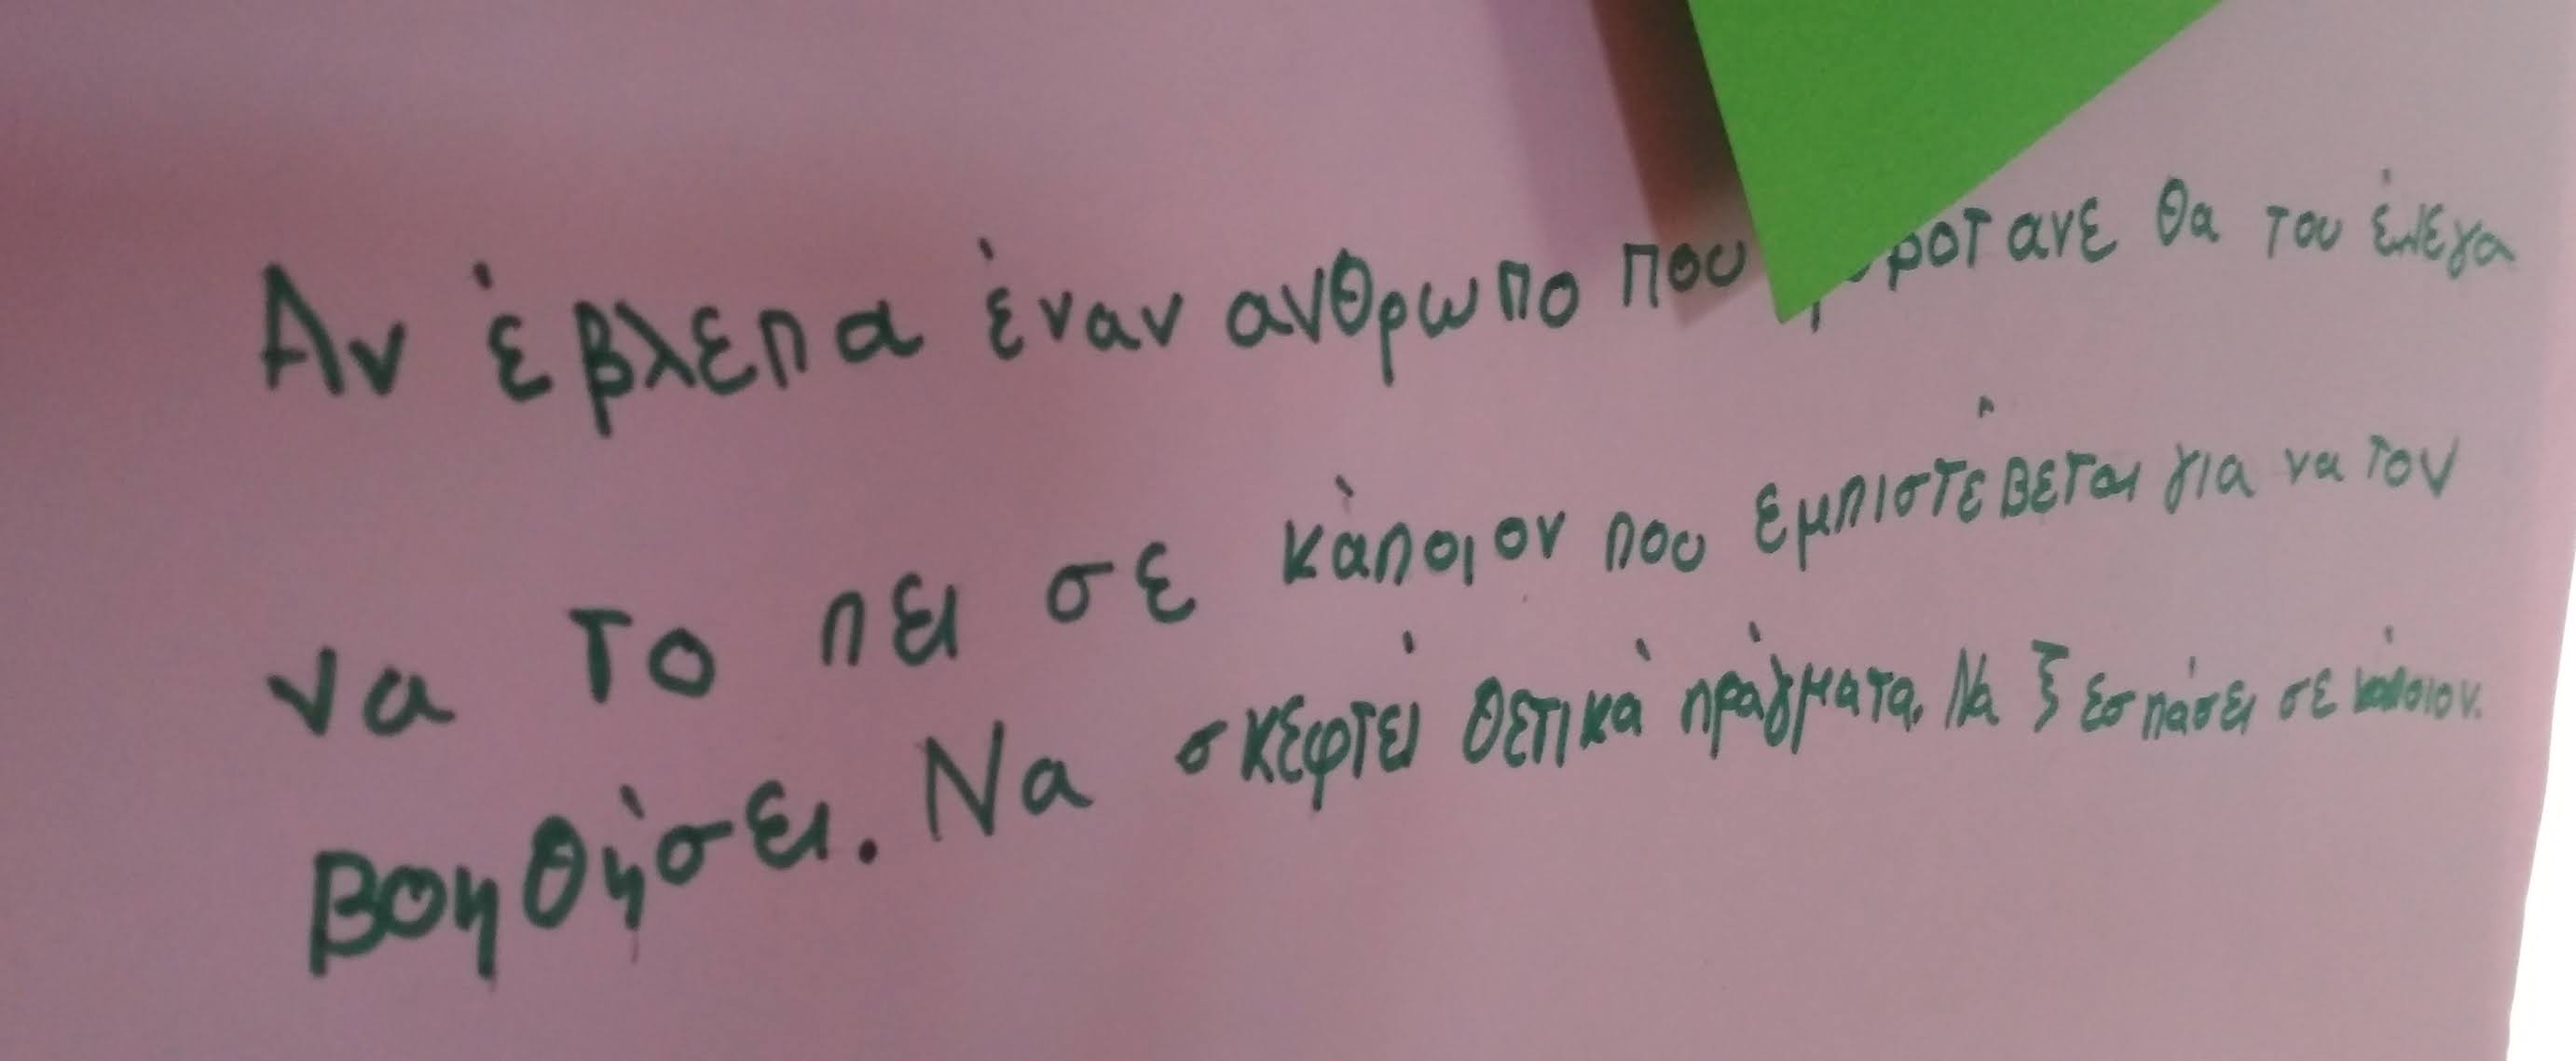 Αν έβλεπα έναν ανθρωπο που θα του έλεγα
να το πει σε κάποιον που εμπιστέβεται για να τον
βοηθήσει. Να σκέφτεί θετικά πράγματα. Να ξεσπάσει σε κάποιον.